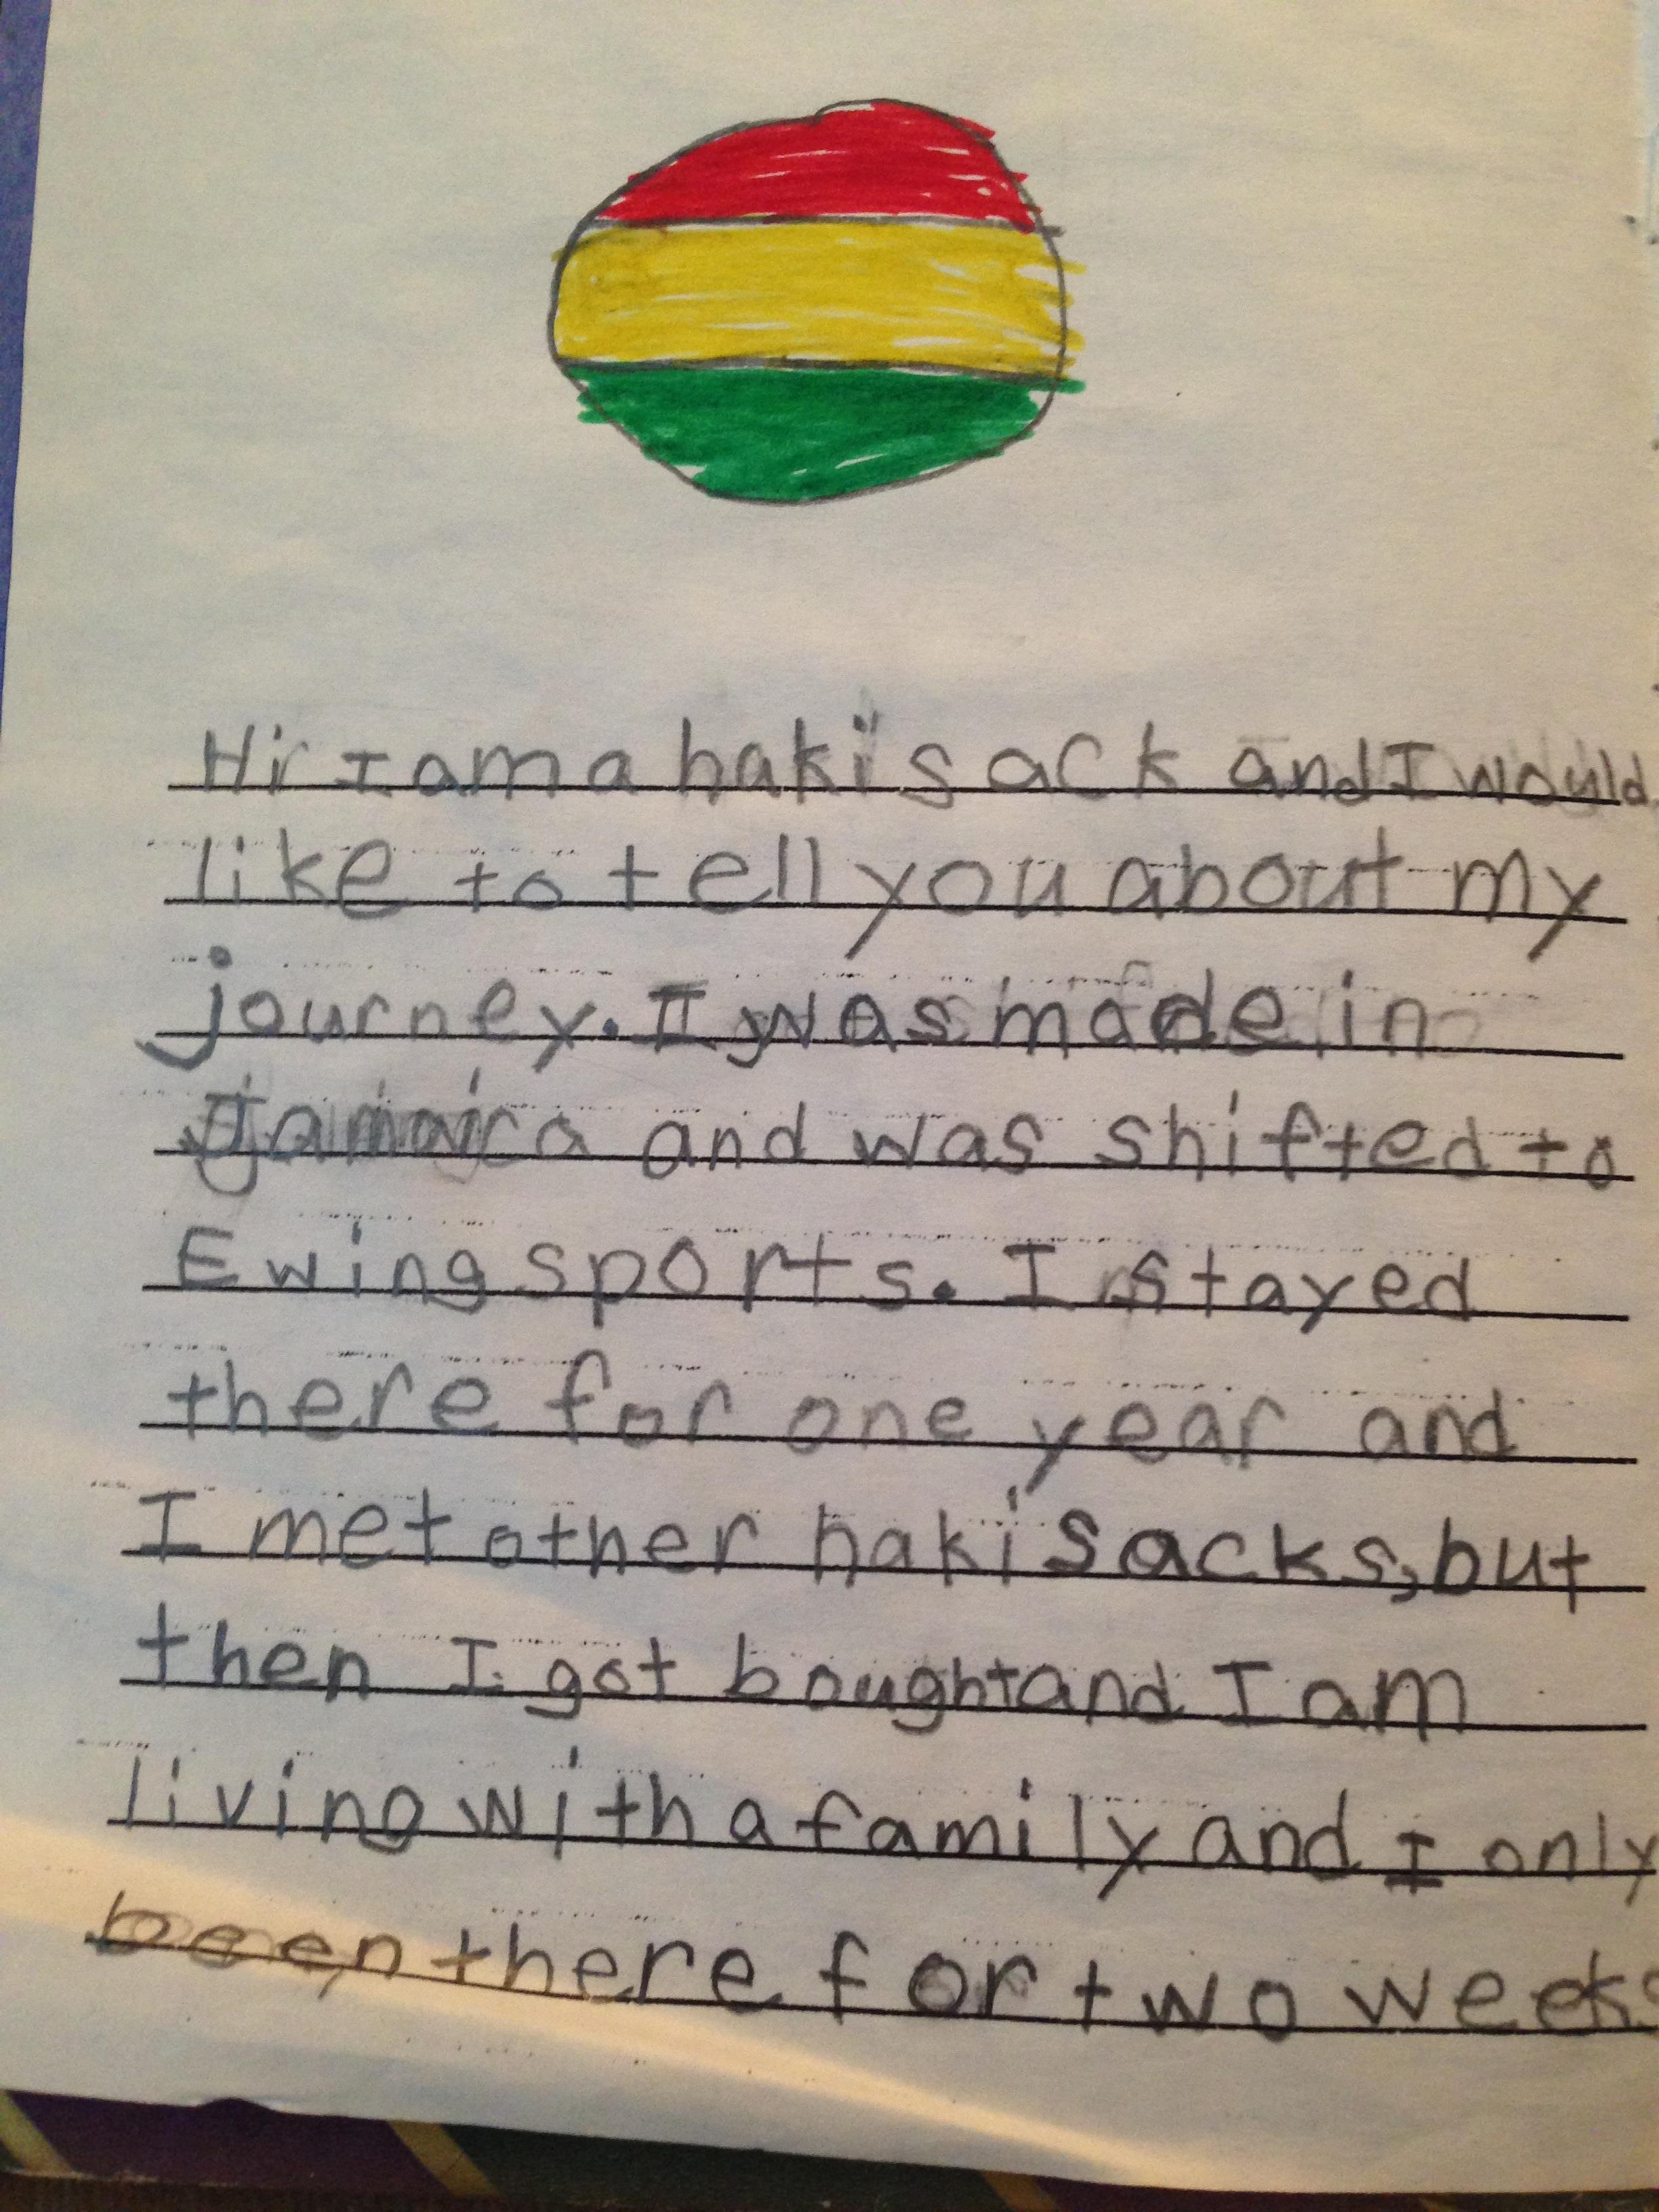 Hi I am a haki sack and I would
like to tell you about my
journey. I was made in
jamaica and was shifted to
Ewing sports. I stayed
there for one year and
I met other haki sacks, but
then I got bought and I am
living with a family and I only
been there for two weeks